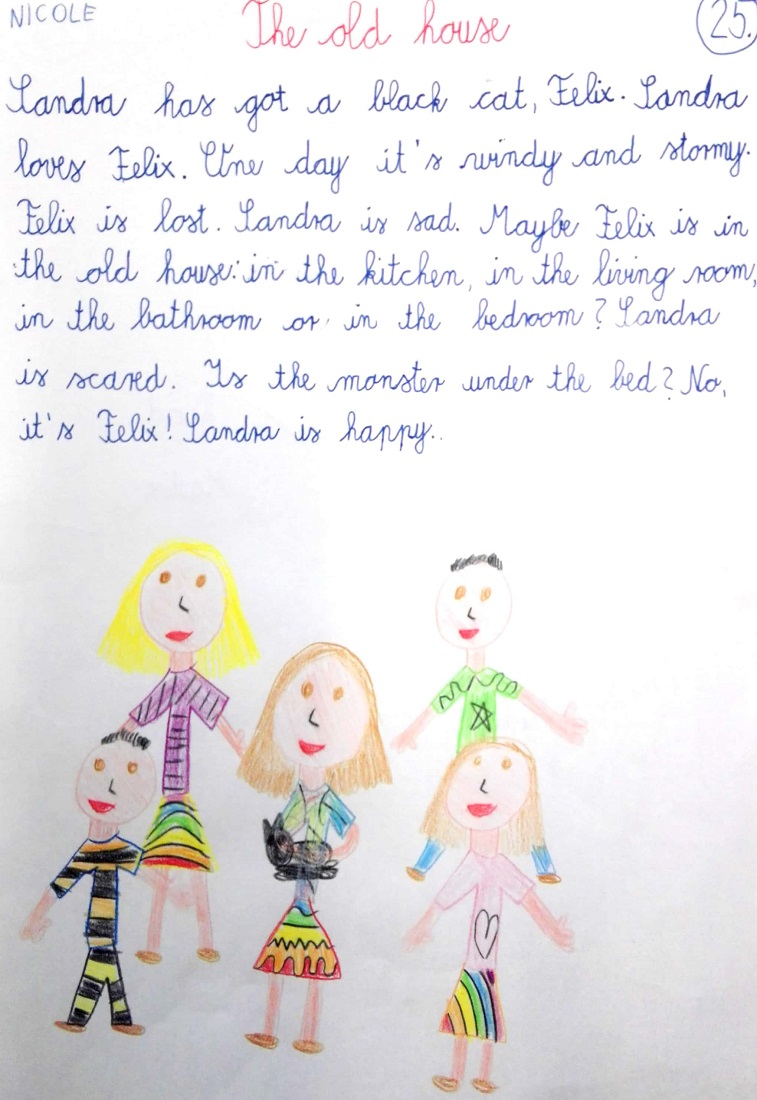 NICOLE
The old house
25.
Sandra has got a black cat, Felix. Sandra
loves Felix. One day it's windy and stormy.
Felix is lost. Sandra is sad. Maybe Felix is in
the old house: in the kitchen, in the living room,
in the bathroom or in the bedroom? Sandra
is scared. Is the monster under the bed? No,
it's Felix! Sandra is happy.